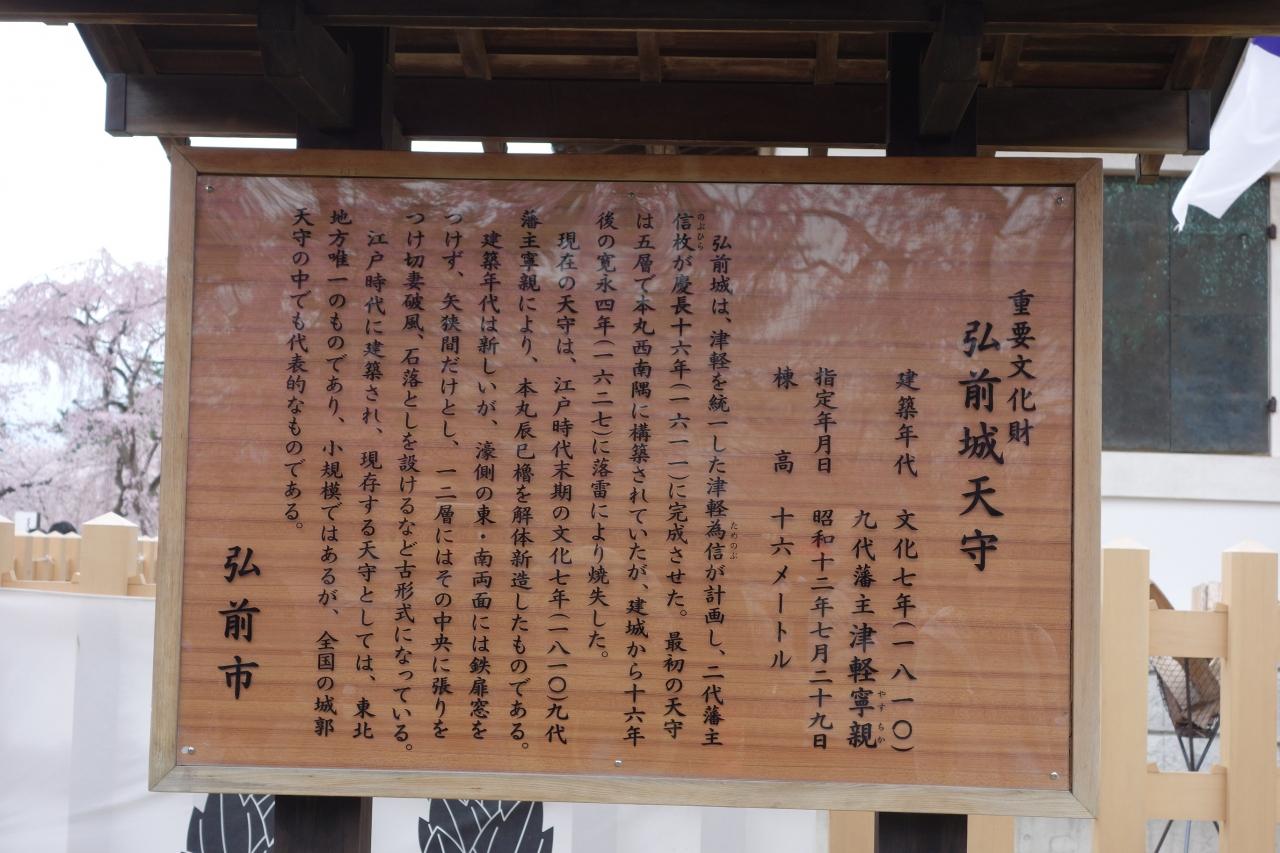 重要文化財
弘前城天守
建築年代 文化七年(一八一〇)
九代藩主津軽寧親
やすちか
指定年月日 昭和十二年七月二十九日
棟高 十六メートル
弘前城は、津軽を統一した津軽為信が計画し、二代藩主
ためのぶ
信枚が慶長十六年(一六一一)に完成させた。最初の天守
のぶひら
は五層で本丸西南隅に構築されていたが、建城から十六年
後の寛永四年(一六二七)に落雷により焼失した。
現在の天守は、江戸時代末期の文化七年(一八一〇)九代
藩主寧親により、本丸辰巳櫓を解体新造したものである。
建築年代は新しいが、濠側の東・南両面には鉄扉窓を
つけず、矢狭間だけとし、一二層にはその中央に張りを
つけ切妻破風、石落としを設けるなど古形式になっている。
江戸時代に建築され、現存する天守としては、東北
地方唯一のものであり、小規模ではあるが、全国の城郭
天守の中でも代表的なものである。
弘前市